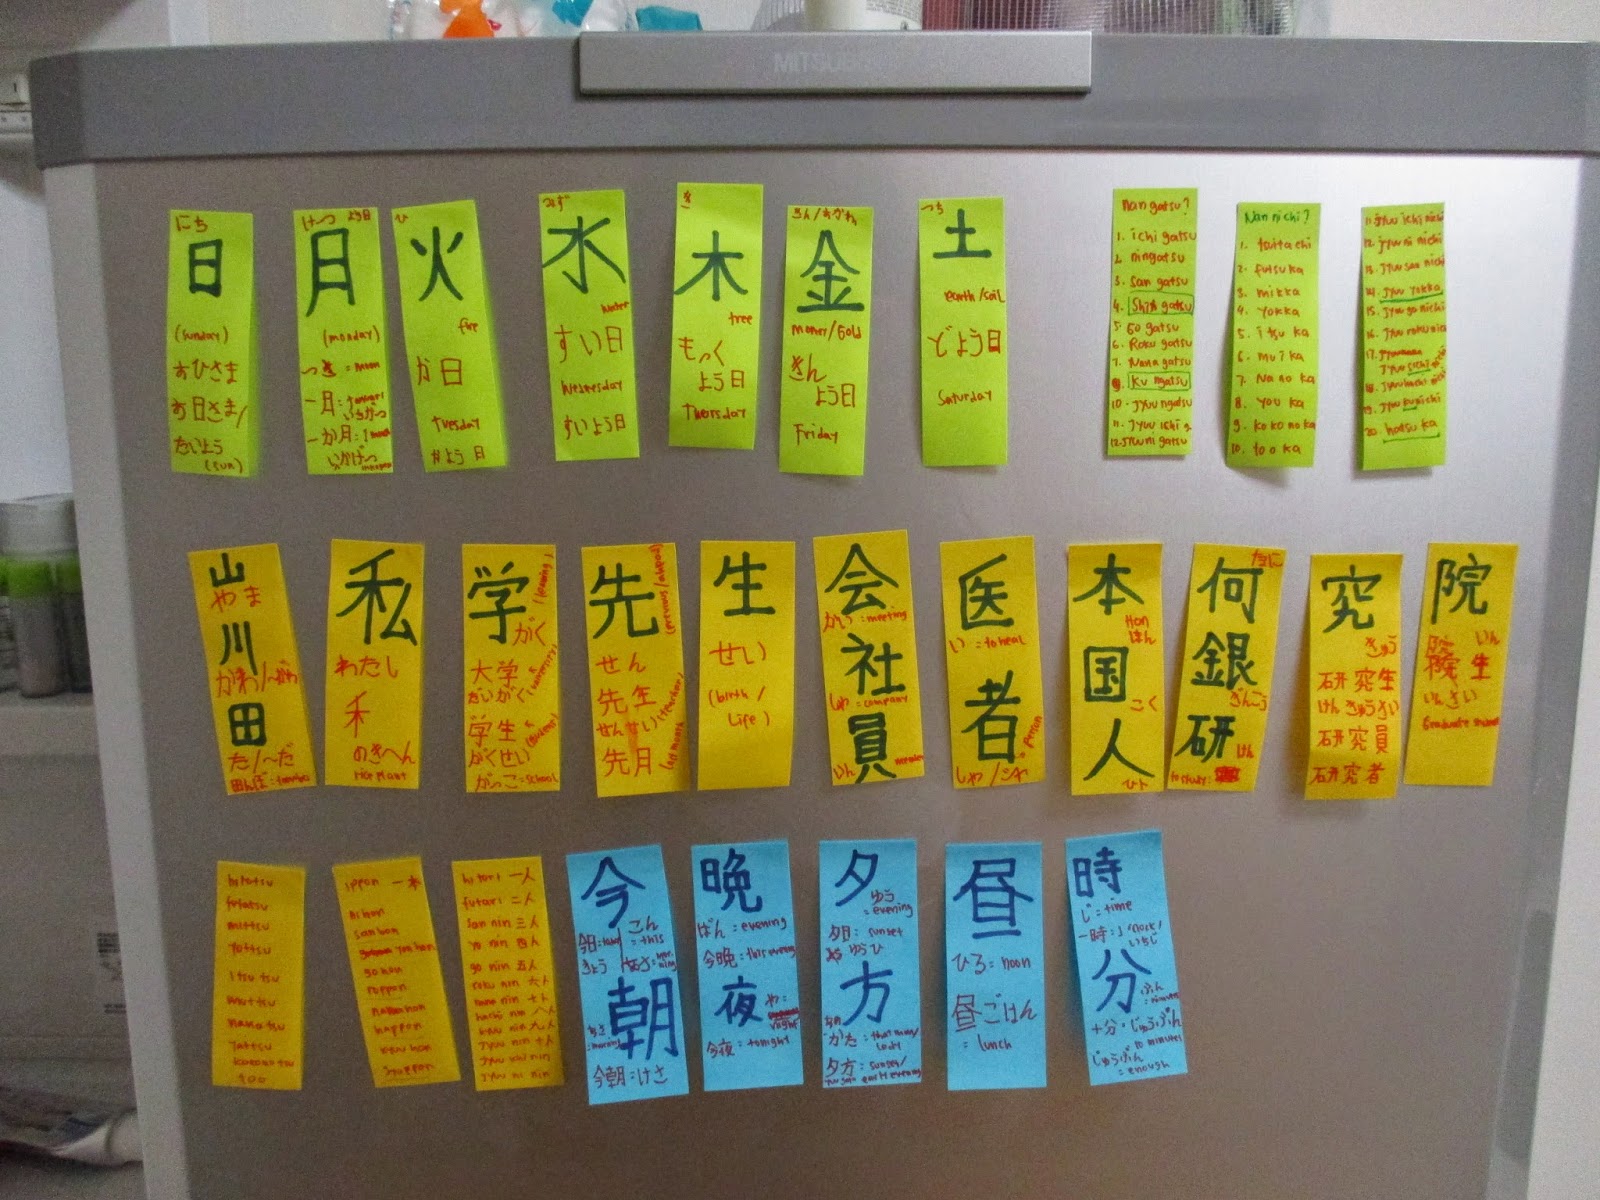 MITSUB
にち
日
(sunday)
おひさま
お日さま/
たいよう
(sun)
けつ よう日
月
(monday)
つき = moon
一月 :
いちがつ
一か月 : 1
ひ
火
fire
か 日
Tuesday
かよう 日
みず
水
water
すい日
Wednesday
すいよう日
き
木
tree
もっく
よう日
Thursday
きん/おかね
金
money/Gold
きん
よう日
Friday
つち
土
earth/soil
どよう日
Saturday
Nan gatsu?
1. ichi gatsu
2. nin gatsu
3. San gatsu
4. Shi gatsu
5. Go gatsu
6. Roku gatsu
7. Nana gatsu
9. Ku ngatsu
10. Jyuu ngatsu
11. Jyuu ichi g
12. Jyuu ni gatsu
Nan nichi?
1. tsuitachi
2. futsu ka
3. mikka
4. Yokka
5. itsu ka
6. mui ka
7. Nano ka
8. you ka
9. koko no ka
10. too ka
11. jyuu ichi nichi
12. jyuu ni nichi
13. jyuu san nichi
14. jyuu yokka
15. jyuu go nichi
16. jyuu roku nici
17.
jyuu sichi
18. jyuu hachi nichi
19. jyuu ku nichi
20. hatsu ka
山
やま
川
かわ/~がわ
田
た/~だ
私
わたし
禾
のぎへん
rice plant
学
がく
(learning)
大学
だいがく
(university)
学生
がくせい
(student)
がっこ = school
先
せん
先生
せんせい (teacher)
先月
(last month)
(previous/ahead)
生
せい
(birth/
Life)
会
かい : meeting
社
しゃ : company
員
いん member
医
い : to heal
者
person
しゃ/
本
Hon
ほん
国
こく
人
ひト
何
なに
銀
ぎんこう
研
けん
to study:
究
きゅう
研究生
けんきゅうせい
研究員
研究者
院
いん
院生
いんせい
Graduate student
hitotsu
futatsu
mittsu
Yottsu
Itsu tsu
muttsu
nana tsu
Yattsu
kokono tsu
too
ippon 一本
ni hon
san bon
yon hon
go hon
roppon
nana hon
happon
kyuu hon
jyuppon
hitori 一人
futari 二人
san nin 三人
yo nin 四人
go nin 五人
roku nin 六人
nana nin 七人
hachi nin 八人
kyuu nin 九人
Jyuu nin 十人
Jyuu ichi nin
Jyuu ni nin
今
こん
= this
今日 :
きょう
朝
あさ
: morning
今朝 : けさ
晩
ばん = evening
今晩 : this evening
夜
や :
night
今夜 : tonight
夕
ゆう
= evening
夕日 : sunset
ゆうひ
方
かた :
夕方 : sunset/
early evening
昼
ひる = noon
昼ごはん
= lunch
時
じ = time
一時 : 1 o'clock/
いちじ
分
ふん
= minutes
十分 = じゅうぷん
10 minutes
じゅうぶん
= enough